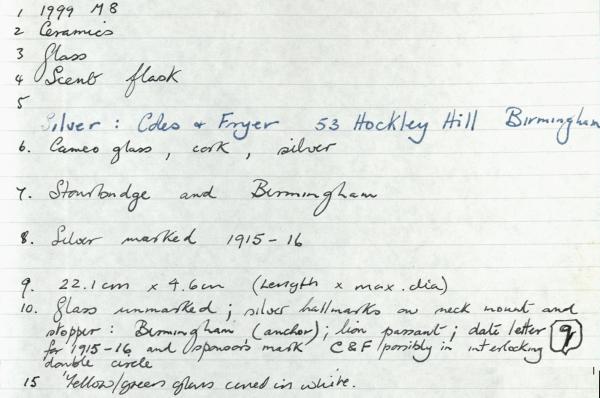 1 1999 M8
2 Ceramics
3 Glass
4 Scent flask
5
Silver : Coles & Fryer 53 Hockley Hill Birmingham
6. Cameo glass, cork, silver
7. Stourbridge and Birmingham
8. Silver marked 1915-16
9. 22.1cm x 4.6cm (Length x max. dia)
10. Glass unmarked; silver hallmarks on neck mount and
stopper: Birmingham (anchor); lion passant; date letter q
for 1915-16 and sponsor's mark C&F possibly in interlocking
double circle
15 Yellow/green glass cased in white.